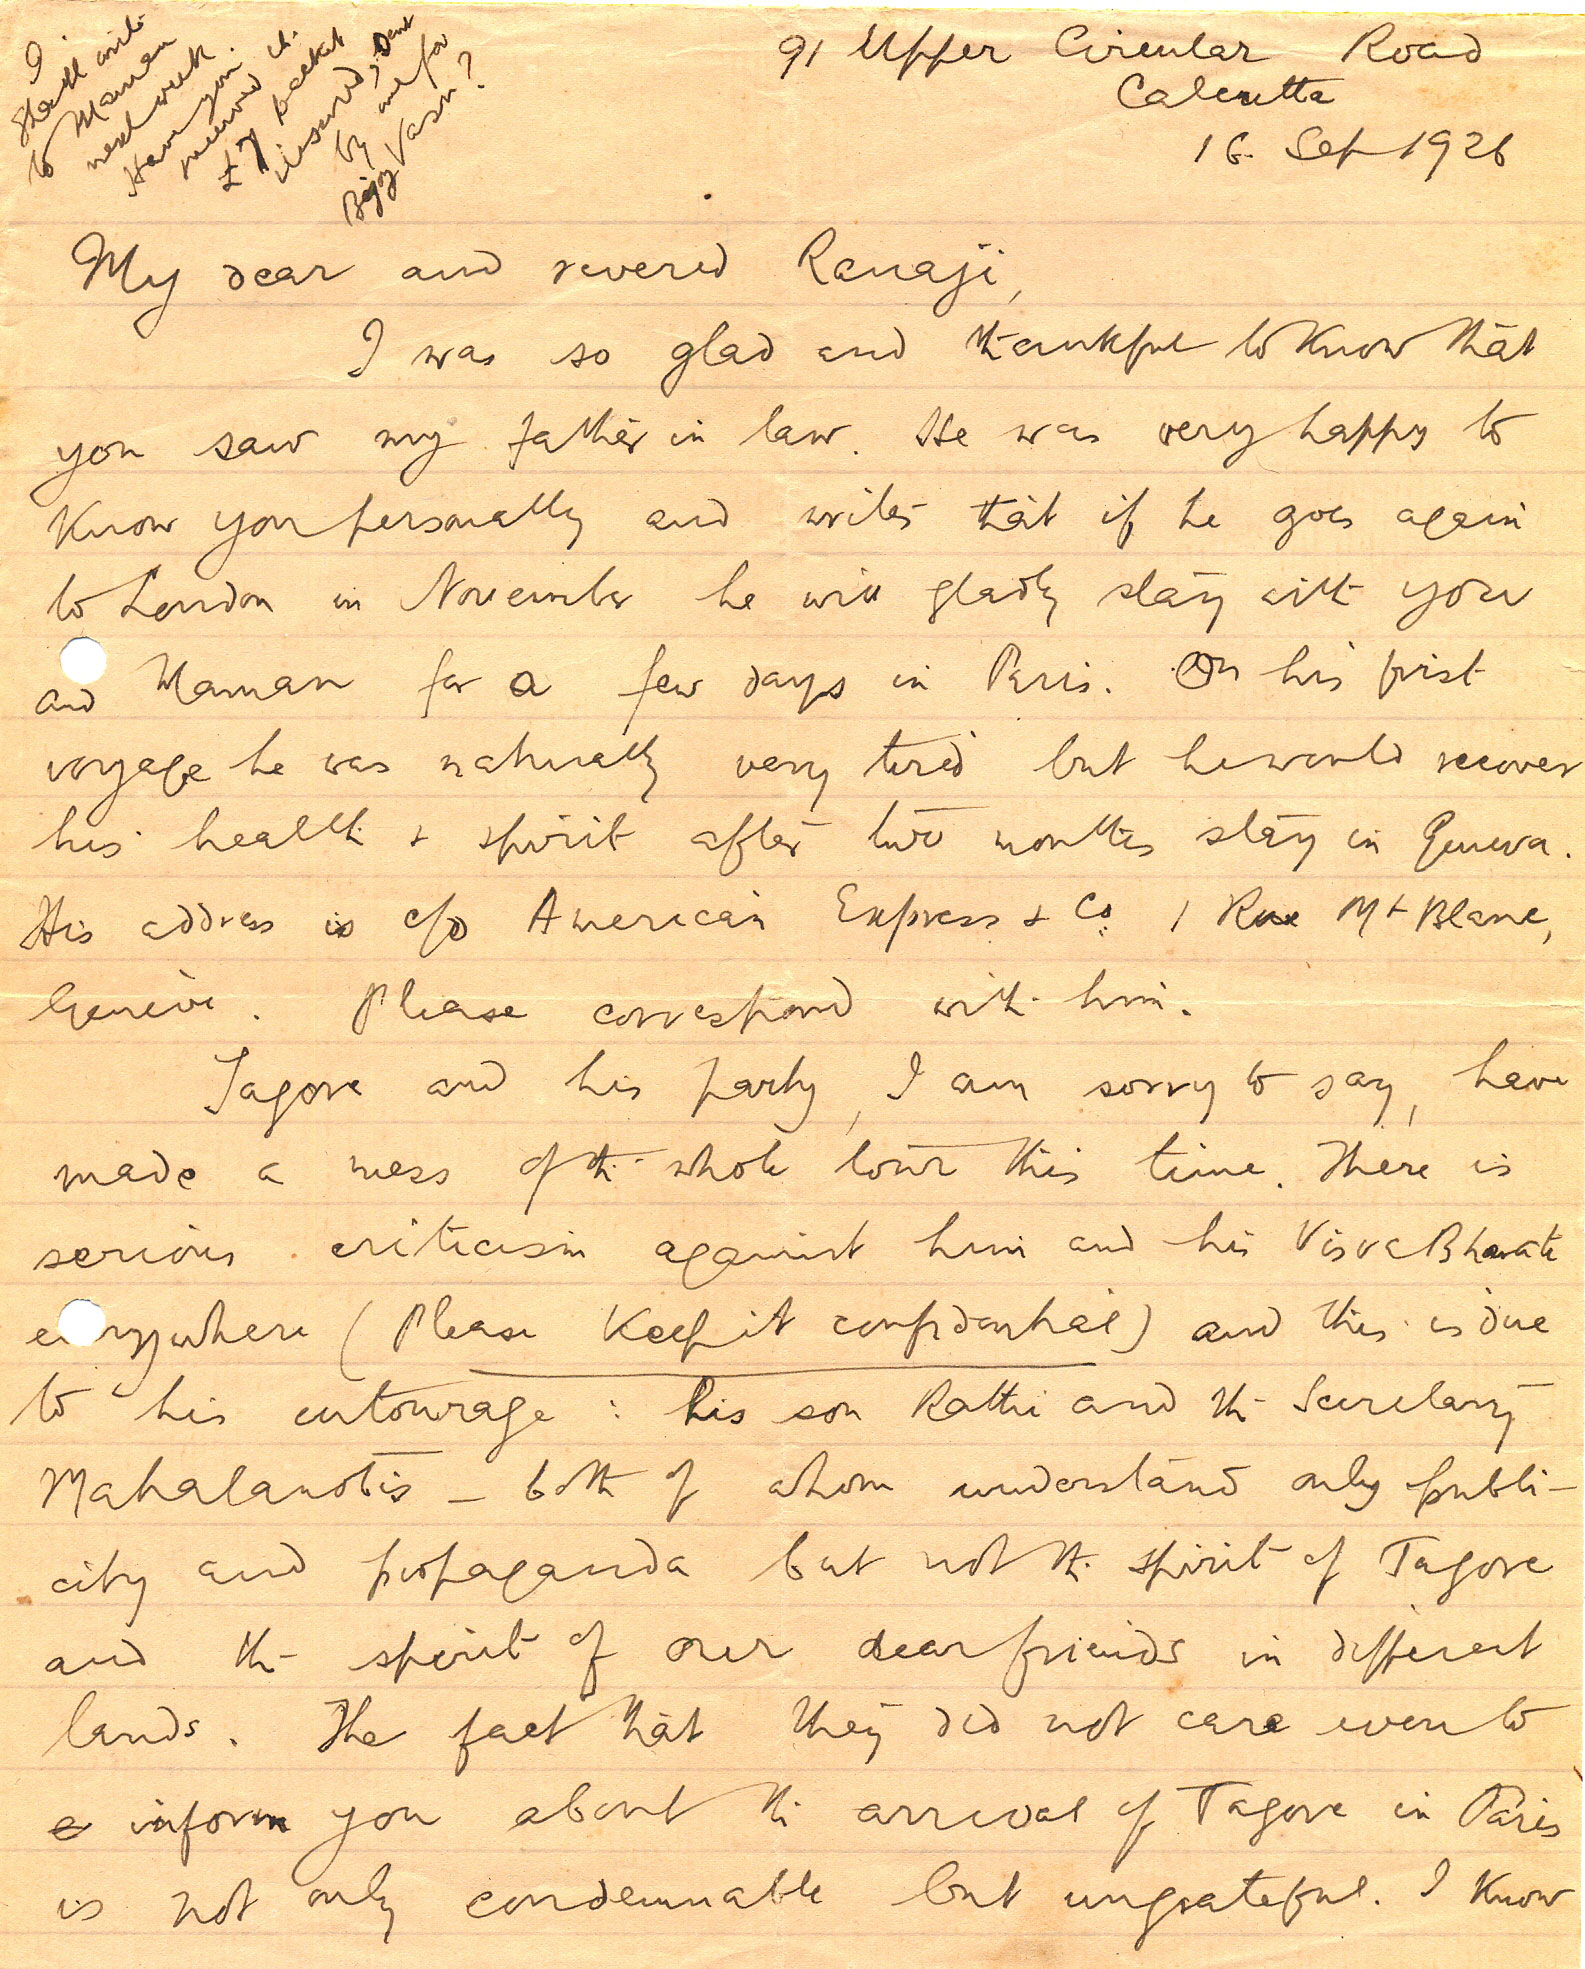 I
shall write
to Maman
next week.
Have you
received the
£7 packet
insured, sent
by me for
Bijoy Vasu?
91 Upper Circular Road
Calcutta
16. Sep 1926
My dear and revered Ranaji,
I was so glad and thankful to know that
you saw my father in law. He was very happy to
know you personally and writes that if he goes again
to London in November he will gladly stay with you
and Maman for a few days in Paris. On his first
voyage he was naturally very tired but he would recover
his health + spirit after two months stay in Geneva.
His address is c/o American Express & Co. 1 Rue Mt Blanc,
Genève. Please correspond with him.
Tagore and his party, I am sorry to say, have
made a mess of the whole tour this time. There is
serious criticism against him and his Visva Bharati
everywhere (Please keep it confidential) and this is due
to his entourage: his son Rathi and the Secretary
Mahalanobis – both of whom understand only publi-
city and propaganda but not the spirit of Tagore
and the spirit of our dear friends in different
lands. The fact that they did not care even to
inform you about the arrival of Tagore in Paris
is not only condemnable but ungrateful. I know